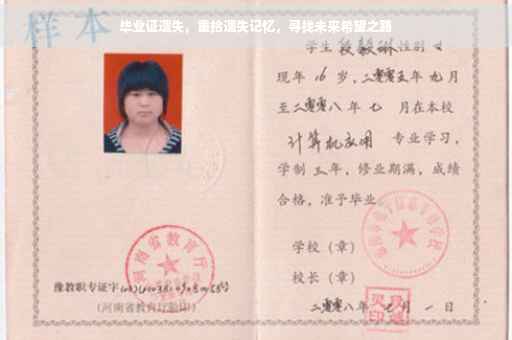 样本
毕业证遗失，重拾遗失记忆，寻找未来希望之路
学生 段毅琳 性别 女
现年 16 岁，二零零五年九月
至二零零八年七 月在本校
计算机应用 专业学习，
学制 三年，修业期满，成绩
合格，准予毕业。
学校（章）
校长（章）
二零零八年 七 月 一 日
河南省教育厅
豫教职专证字
（河南省教育厅验印）